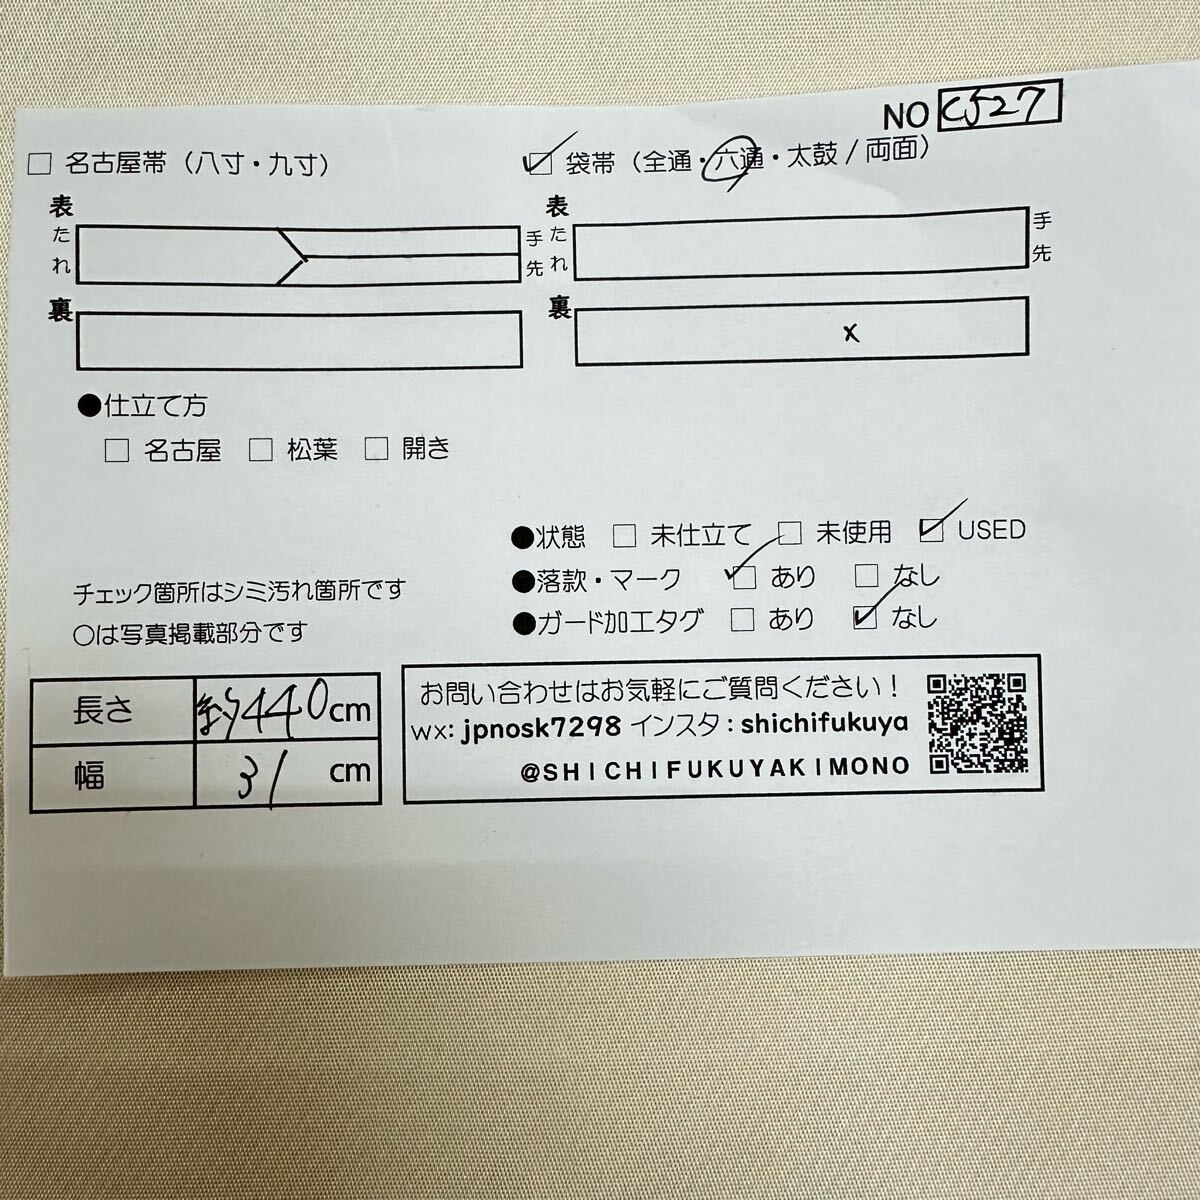 NO C527
□ 名古屋帯（八寸・九寸）
☑ 袋帯（全通・六通・太鼓/両面）
表
たれ
手先
裏
表
たれ
手先
裏
x
●仕立て方
□ 名古屋 □ 松葉 □ 開き
●状態 □ 未仕立て □ 未使用 ☑ USED
●落款・マーク ☑ あり □ なし
●ガード加工タグ □ あり ☑ なし
チェック箇所はシミ汚れ箇所です
○は写真掲載部分です
長さ 約440cm
幅 31 cm
お問い合わせはお気軽にご質問ください！
wx: jpnosk7298 インスタ：shichifukuya
@SHICHIFUKUYAKIMONO